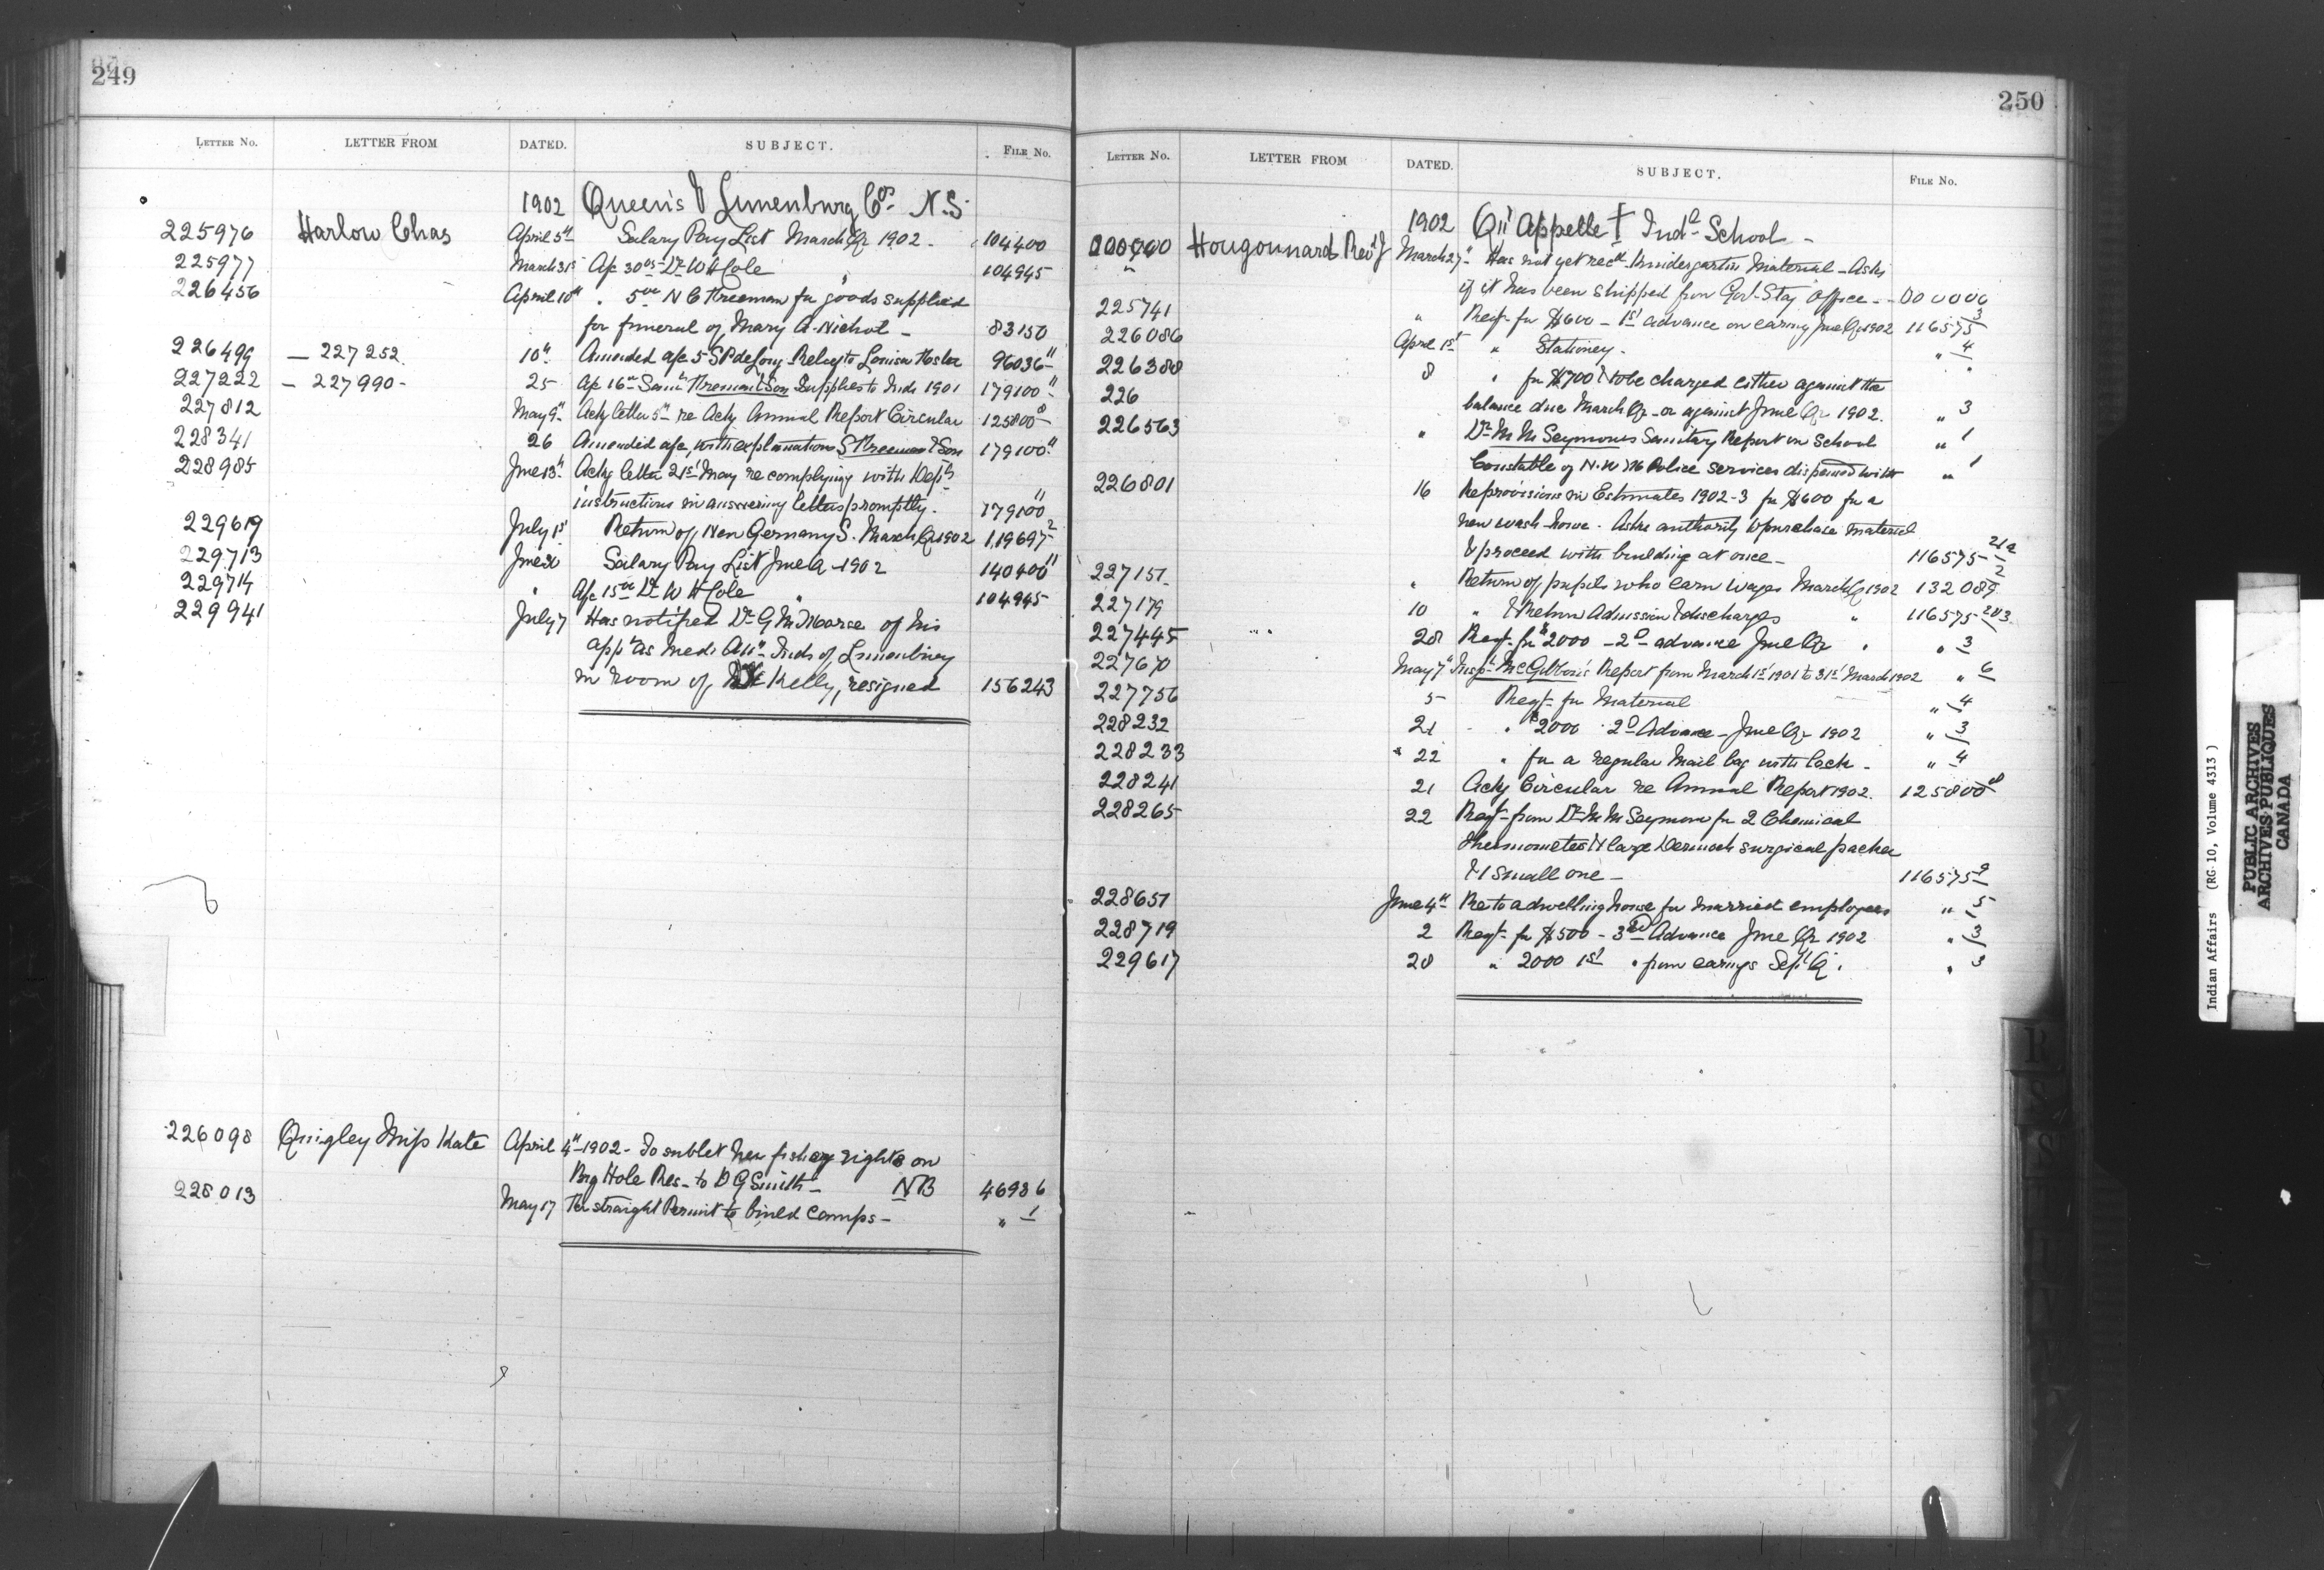 249
LETTER No. LETTER FROM DATED. SUBJECT. FILE No.
1902 Queen's & Lunenburg Cos. N.S.
225976 Harlow Chas April 5th Salary Pay List March Qr 1902 - 104400
225977 March 31st A/c 30 Dr W H Cole " 104945
226456 April 10th " 5 N C Freeman for goods supplied
for funeral of Mary A. Nichol - 83150
226499 — 227252 10th Amended a/c 5 S P deLong Relay to Louisa Hosler 96036
227222 — 227990 - 25 A/c 16 Saml Freeman & Son Supplies to Inds 1901 179100
227812 May 9th Ackg letter 5th re Ackg Annual Report Circular 125800
228341 26 Amended a/c with explanations S Freeman & Son 179100
228985 June 13th Ackg letter 21st May re complying with Dept's
instructions in answering letters promptly. 179100
229619 July 1st Return of New Germany S. March Qr 1902 119697-2
229713 June 30 Salary Pay List June Q - 1902 140400
229714 " A/c 15 Dr W H Cole " 104945
229941 July 7 Has notified Dr G M Morse of his
appt as Medl Att Inds of Lunenburg
in room of Kelly, resigned 156243
226098 Quigley Miss Kate April 4th 1902 - To sublet her fishery rights on
Big Hole Res - to D G Smith - NB 46986
228013 May 17 For straight Permit to build Camps - " 1
250
LETTER No. LETTER FROM DATED. SUBJECT. FILE No.
1902 Qu'Appelle Indl School -
000,000 Hougonnard Revd J March 27th Has not yet recd Kindergarten Material - Asks
" if it has been shipped from Govt Staty Office - - 000000
225741 " Reqt for $600 - 1st advance on earng June Qr 1902 116575-3
226086 April 1st " Stationery - " 4
226388 8 " for $700 to be charged either against the
226 balance due March Qr - or against June Qr 1902. " 3
226563 " Dr M M Seymour's Sanitary Report on School " 1
Constable of N.W.M Police services dispensed with " 1
226801 16 Re provisions in Estimates 1902-3 for $600 for a
new wash-house. Asks authority to purchase material
& proceed with building at once - 116575
227151 " Return of pupils who earn wages March Qr 1902 132089
227179 10 " & Return Admission & discharges " 116575-2&3
227445 28 Reqt for $2000 - 2d advance June Qr " " 3
227670 May 7th Inspr McGibbon's Report from March 1st 1901 to 31st March 1902 " 6
227756 5 Reqt for Material " 4
228232 21 " $2000 2d Advance - June Qr 1902 " 3
228233 " 22 " for a regular Mail bag with lock - " 4
228241 21 Ackg Circular re Annual Report 1902. 125800
228265 22 Reqt from Dr M M Seymour for 2 Chemical
thermometers & 1 large surgical packer
& 1 small one - 116575
228651 June 4th Re to a dwelling house for married employees " 5
228719 2 Reqt for $500 - 3rd Advance June Qr 1902 " 3
229617 28 " 2000 1st " from earnings Sept Q. " 3
Indian Affairs (RG 10, Volume 4313)
PUBLIC ARCHIVES
ARCHIVES PUBLIQUES
CANADA